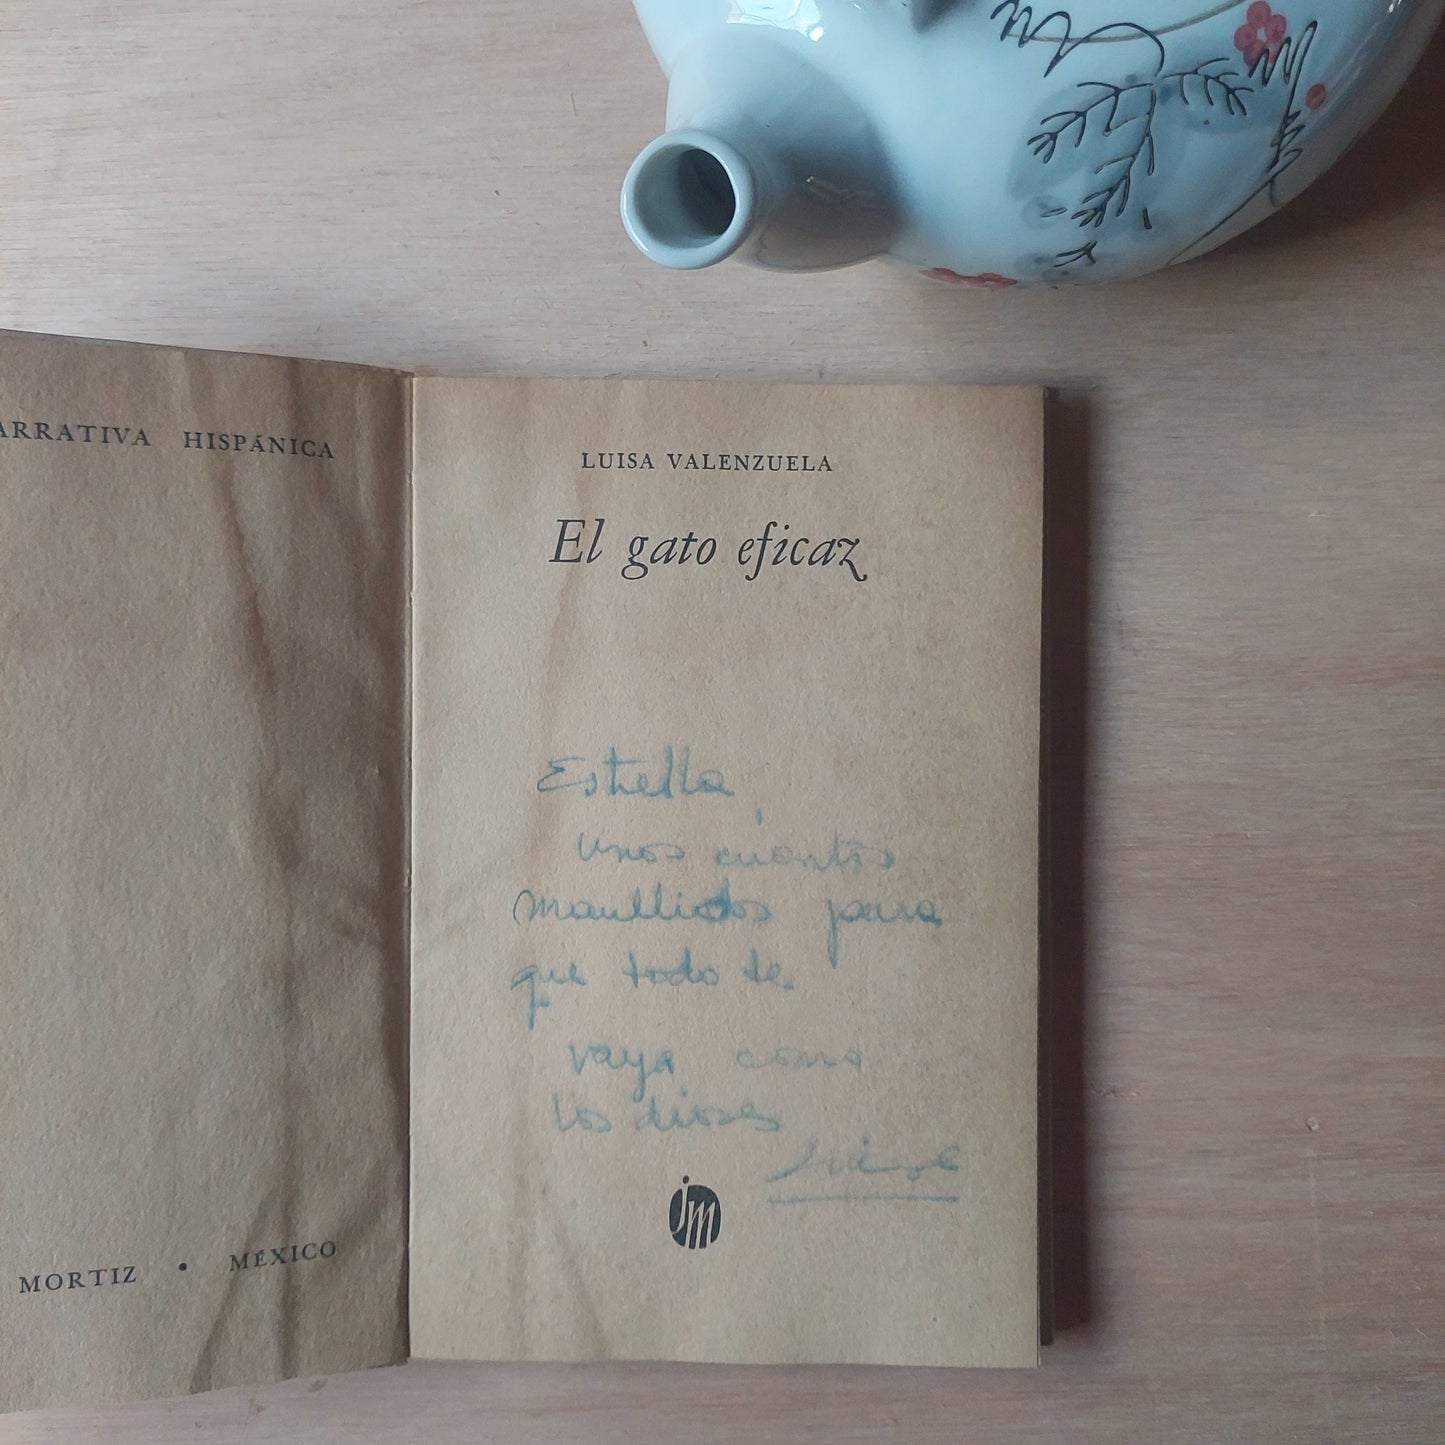 ARRATIVA HISPÁNICA
MORTIZ • MÉXICO
LUISA VALENZUELA
El gato eficaz
Estrella,
unos cuantos
maullidos para
que todo te
vaya como
los dioses
jm